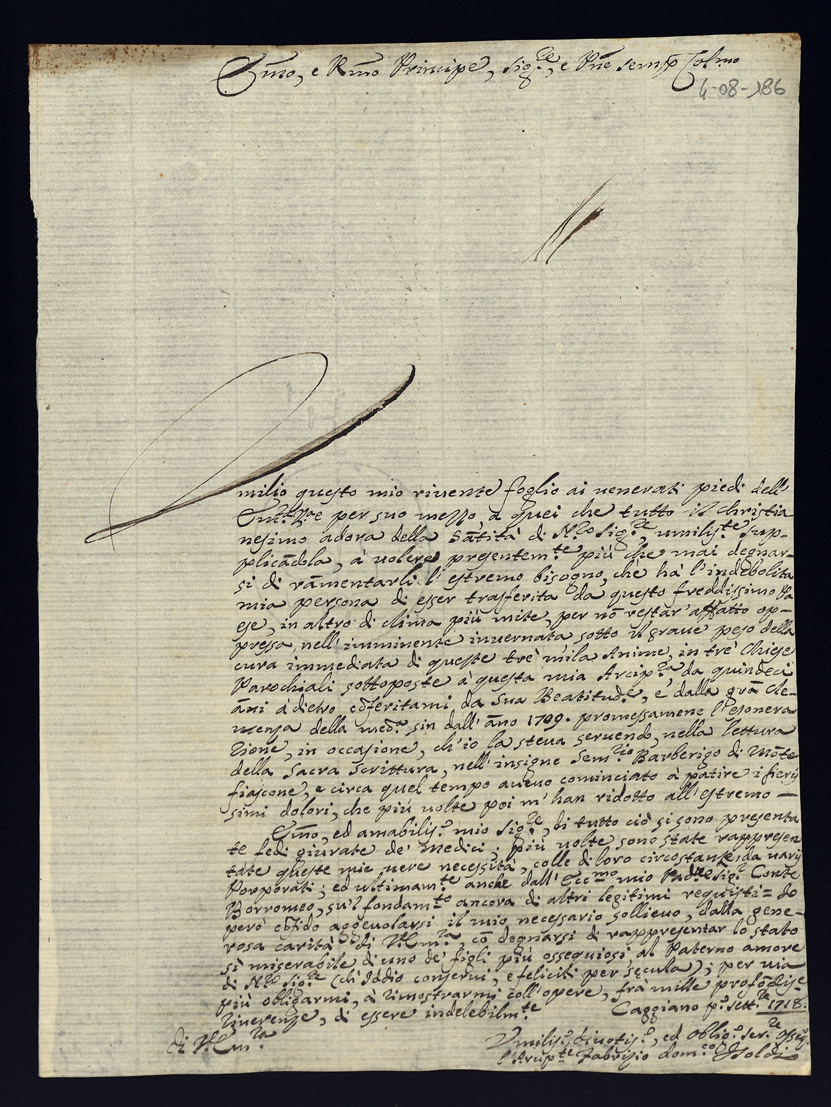 Em̃o, e Rm̃o Principe, Sig.re, e Prñe semp Colmo
4-08-186
milio questo mio riuente foglio ai uenerati piedi dell'
per suo mezzo, a quei che tutto il Christia
nesimo adora della Sãtità di Nro Sig.re, umilis.te sup-
plicãdola, à uolere presentem.te più che mai degnar-
si di rãmentarli l'estremo bisogno, che hà l'indebolita
mia persona di esser trasferita da questo freddissimo Pa
ese, in altro di clima più mite, per nõ restar affatto op-
pressa, nell'imminente inuernata sotto il graue peso della
cura immediata di queste trè mila Anime, in trè Chiese
Parochiali sottoposte à questa mia Arcip.ra, da quindeci
ãni à dietro cõferitami da Sua Beatitud.e, e dalla grã Cle-
menza della med.a sin dall'ãno 1709. promessamene l'esonera
zione, in occasione, ch'io la steua seruendo, nella lettura
della Sacra Scrittura, nell'insigne Sem.rio Barberigo di Mõte
fiascone, e circa quel tempo aueuo cominciato à patire i fieris
simi dolori, che più uolte poi m'han ridotto all'estremo —
Em̃o, ed amabilis.o mio Sig.re, di tutto ciò si sono presenta
te fedi giurate de' medici; più uolte sono state rappresen
tate queste mie uere necessità, colle di loro circostanze, da uarij
Porporati; ed ultimam.te anche dall'Ecc.mo mio Padre Sig.r Conte
Borromeo, sù'l fondam.to ancora di altri legitimi requisiti = Io
però cõfido aggeuolarsi il mio necessario sollieuo, dalla gene-
rosa carità di V.Em.za, cõ degnarsi di rappresentar lo stato
sì miserabile di uno de' figli più ossequiosi al Paterno amore
di Nro Sig.re (che Iddio conserui, e feliciti per secula); per uia
più obligarmi, à dimostrarmi coll'opere, frà mille profõdiss.e
riuerenze, di essere indelebilm.te Caggiano p.o Sett.re 1718.
di V.Em.za
Umilis.o, diuotis.o, ed oblig.o ser.re osseq.
l'Arcip.te Fabrizio dom.co Isoldi